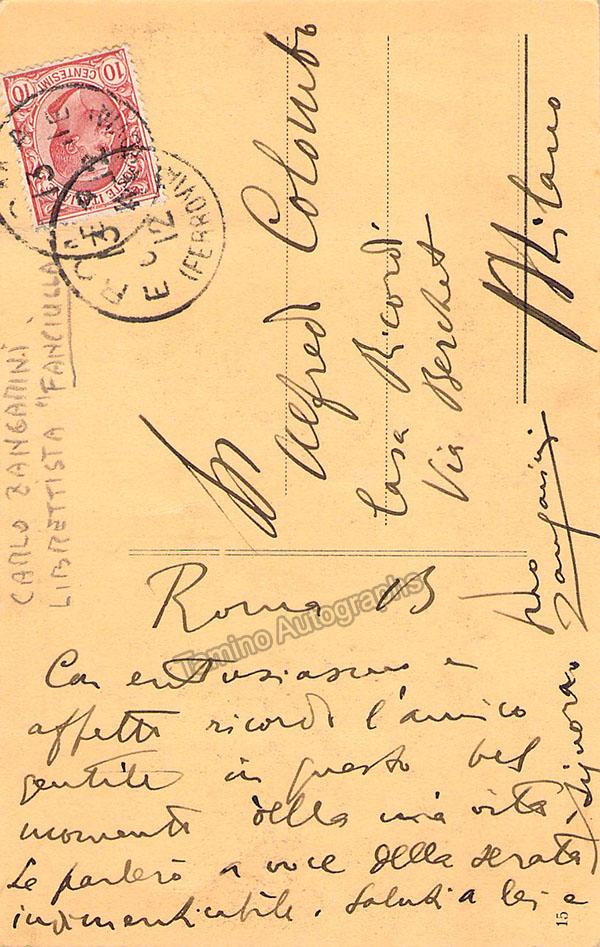 10 CENTESIMI 10
POSTE
ROMA
13
12
(FERROVIA)
CARLO ZANGARINI
LIBRETTISTA "FANCIULLA
Alfredo Colombo
Casa Ricordi
Via Berchet
Milano
Roma 13
Con entusiasmo e
affetto ricordo l'amico
gentile in questo bel
momento della mia vita.
Le parlerò a voce della serata
indimenticabile. Saluti a lei e
Signora
Suo
Zangarini
Tamino Autographs
15